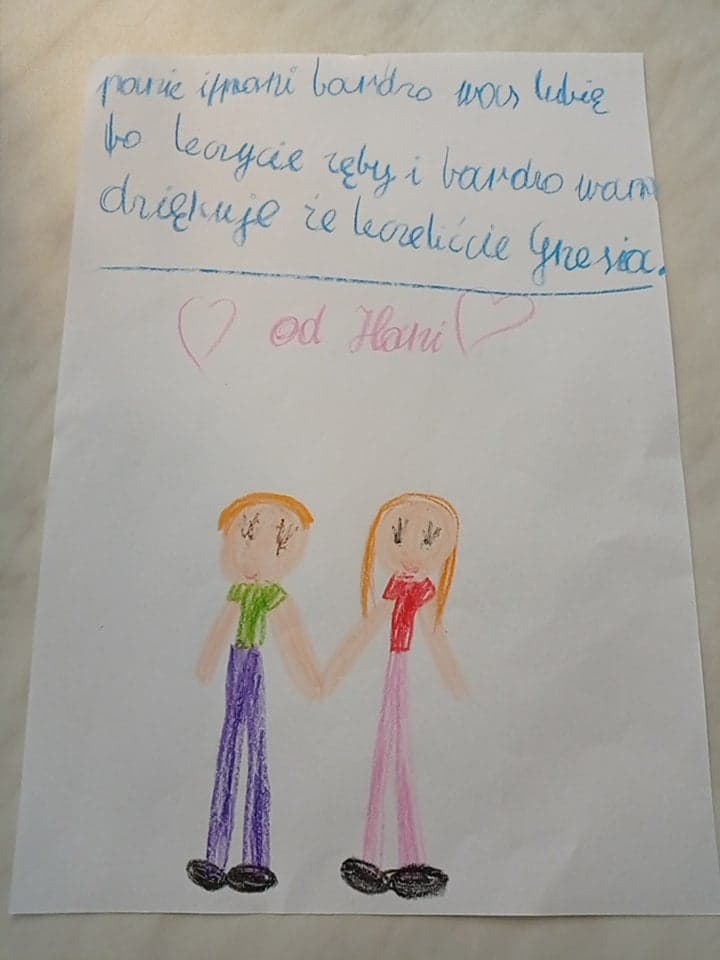 panie i pani bardzo was lubię
bo leczycie zęby i bardzo wam
dziękuje że leczeliście Grzesia.
od Hani